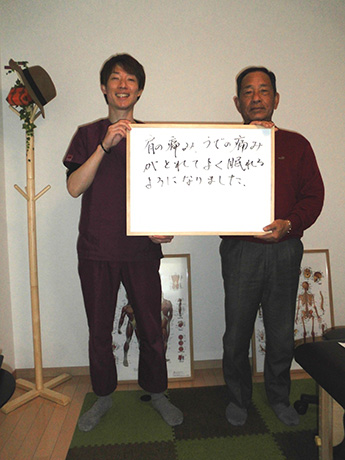 肩の痛み、うでの痛み
がとれてよく眠れる
ようになりました。